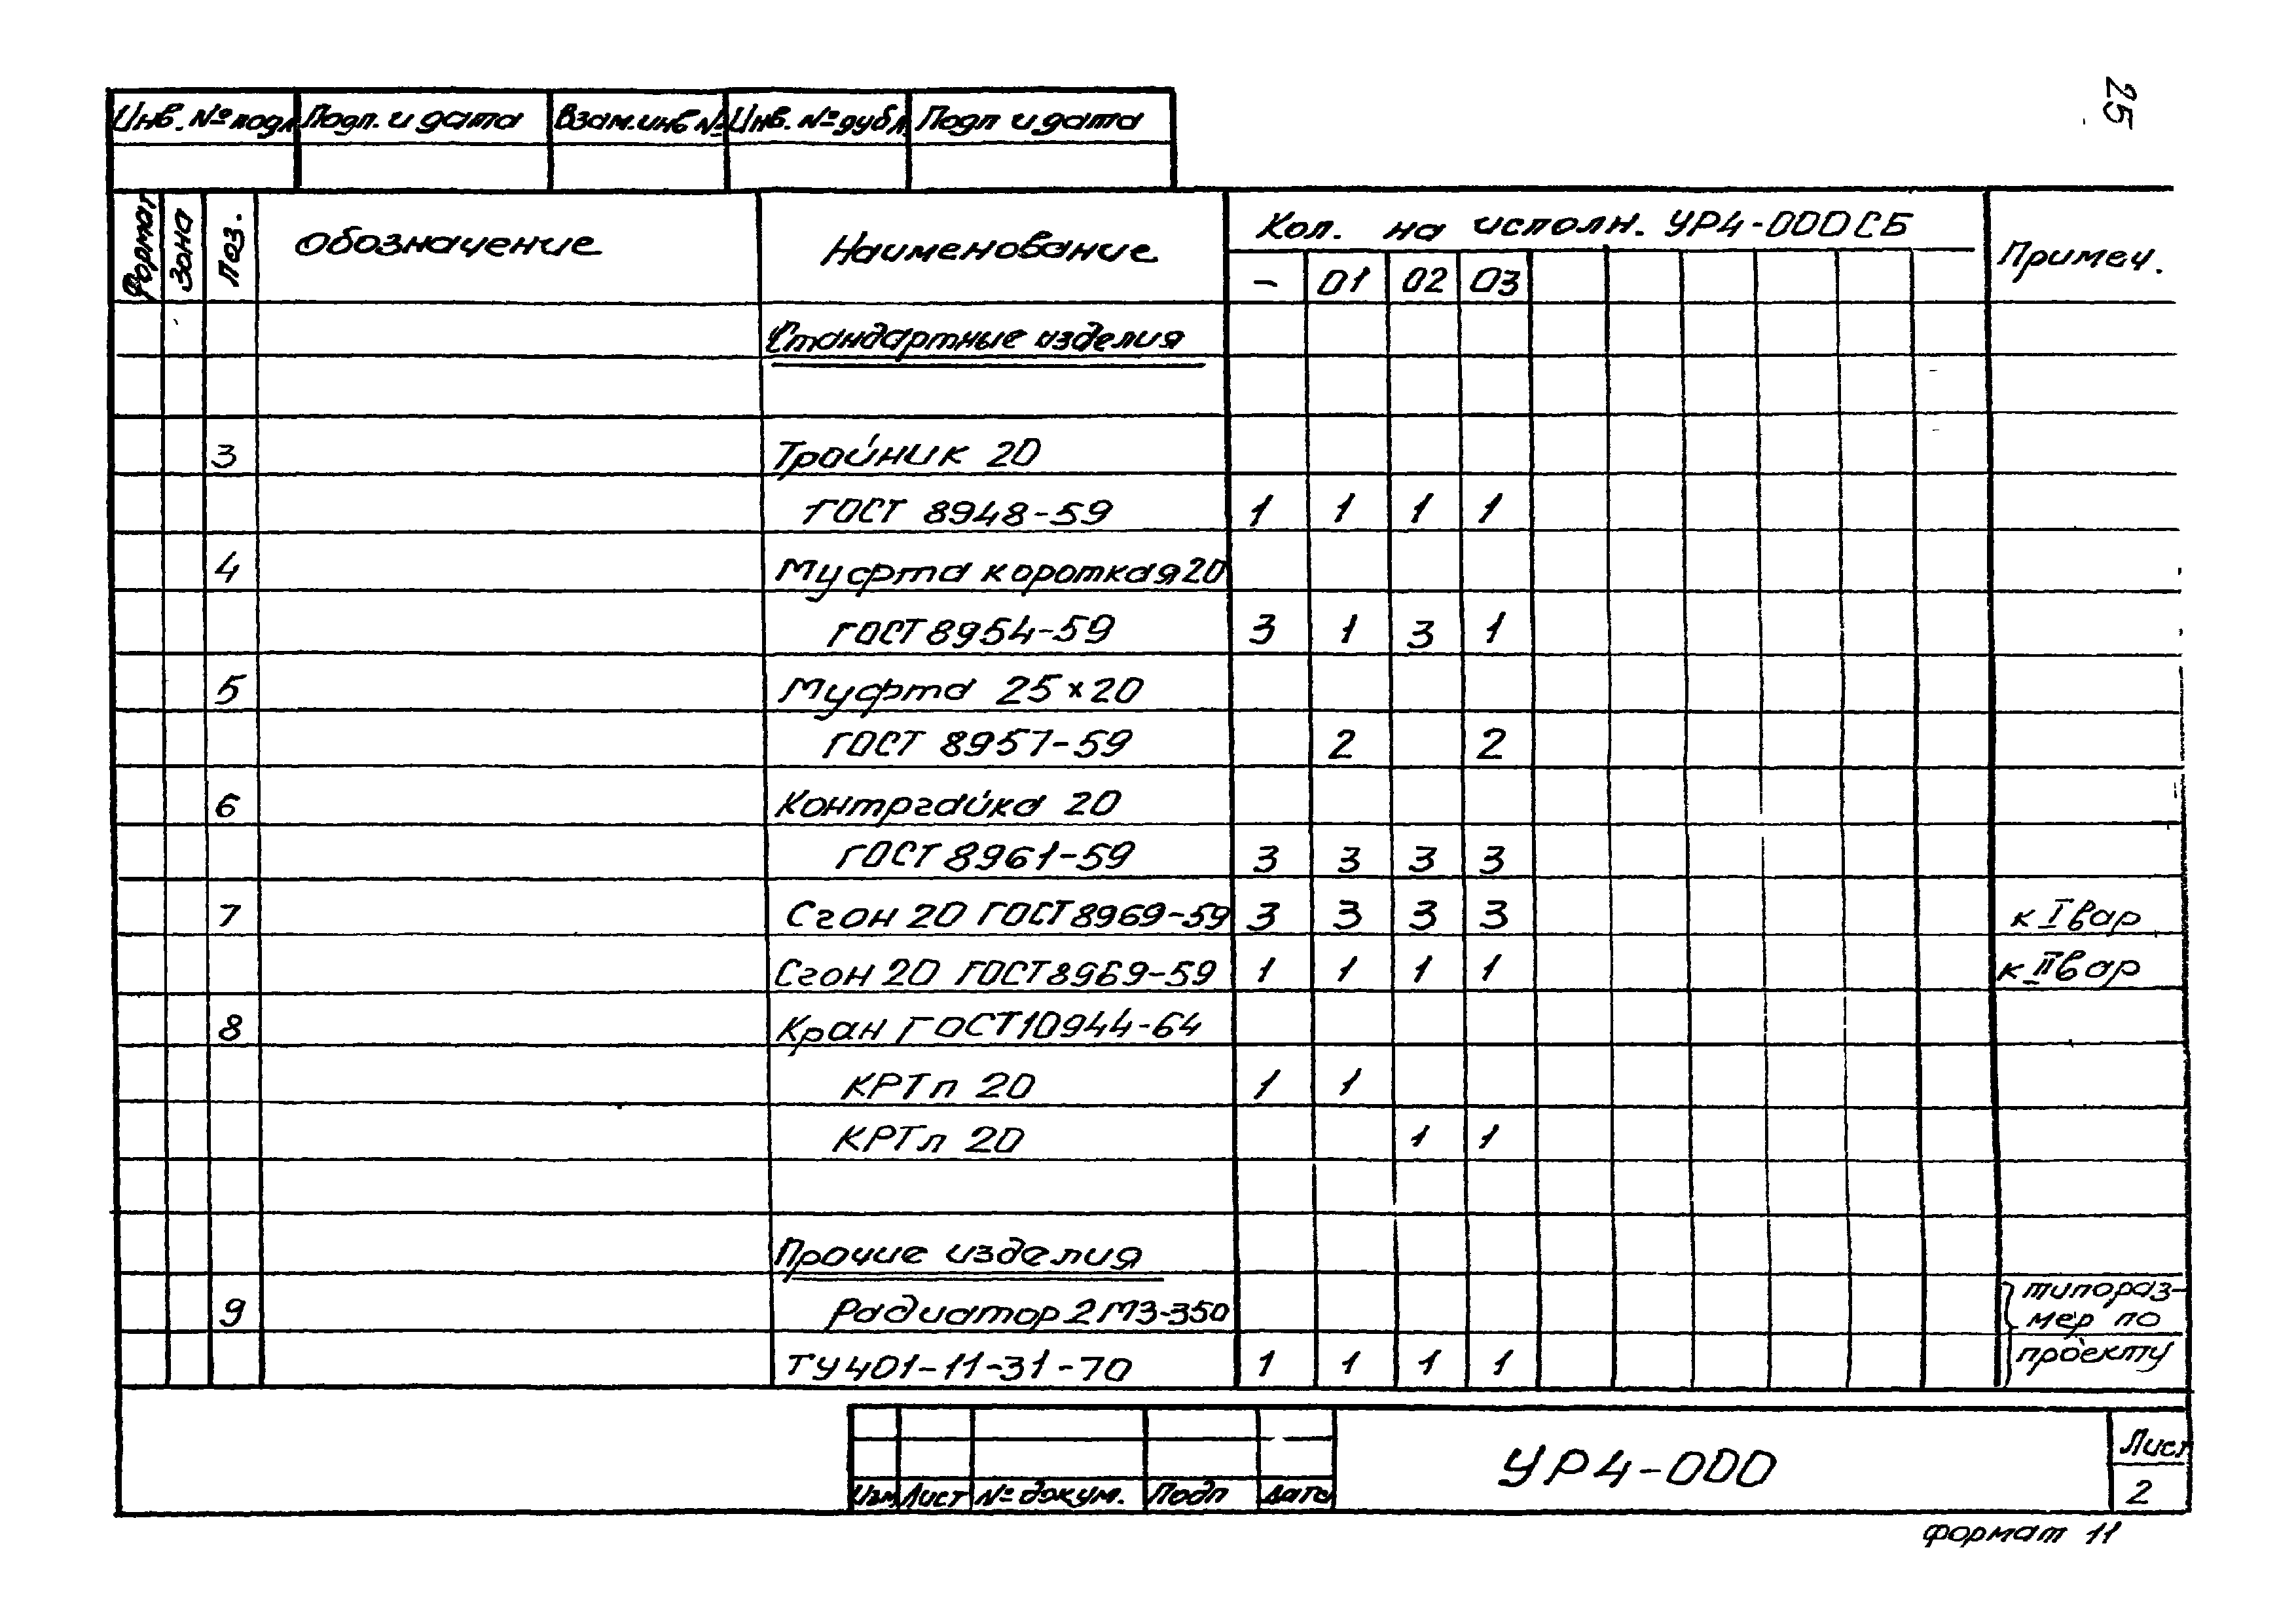 25
Инв. № подл Подп. и дата Взам.инв № Инв. № дубл. Подп и дата
Формат Зона Поз. Обозначение Наименование Кол. на исполн. УР4-000СБ Примеч.
- 01 02 03
Стандартные изделия
3 Тройник 20
ГОСТ 8948-59 1 1 1 1
4 Муфта короткая 20
ГОСТ 8954-59 3 1 3 1
5 Муфта 25×20
ГОСТ 8957-59 2 2
6 Контргайка 20
ГОСТ 8961-59 3 3 3 3
7 Сгон 20 ГОСТ 8969-59 3 3 3 3 к I вар
Сгон 20 ГОСТ 8969-59 1 1 1 1 к II вар
8 Кран ГОСТ 10944-64
КРТп 20 1 1
КРТл 20 1 1
Прочие изделия
9 Радиатор 2М3-350 типораз-
мер по
ТУ 401-11-31-70 1 1 1 1 проекту
УР4-000 Лист
2
Изм Лист № докум. Подп Дата
Формат 11